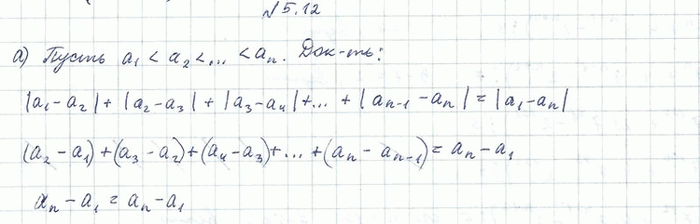 №5.12
а) Пусть a₁ < a₂ < ... < aₙ. Док-ть:
|a₁-a₂| + |a₂-a₃| + |a₃-a₄| + ... + |aₙ₋₁ -aₙ| = |a₁-aₙ|
(a₂-a₁) + (a₃-a₂) + (a₄-a₃) + ... + (aₙ - aₙ₋₁) = aₙ-a₁
aₙ-a₁ = aₙ-a₁